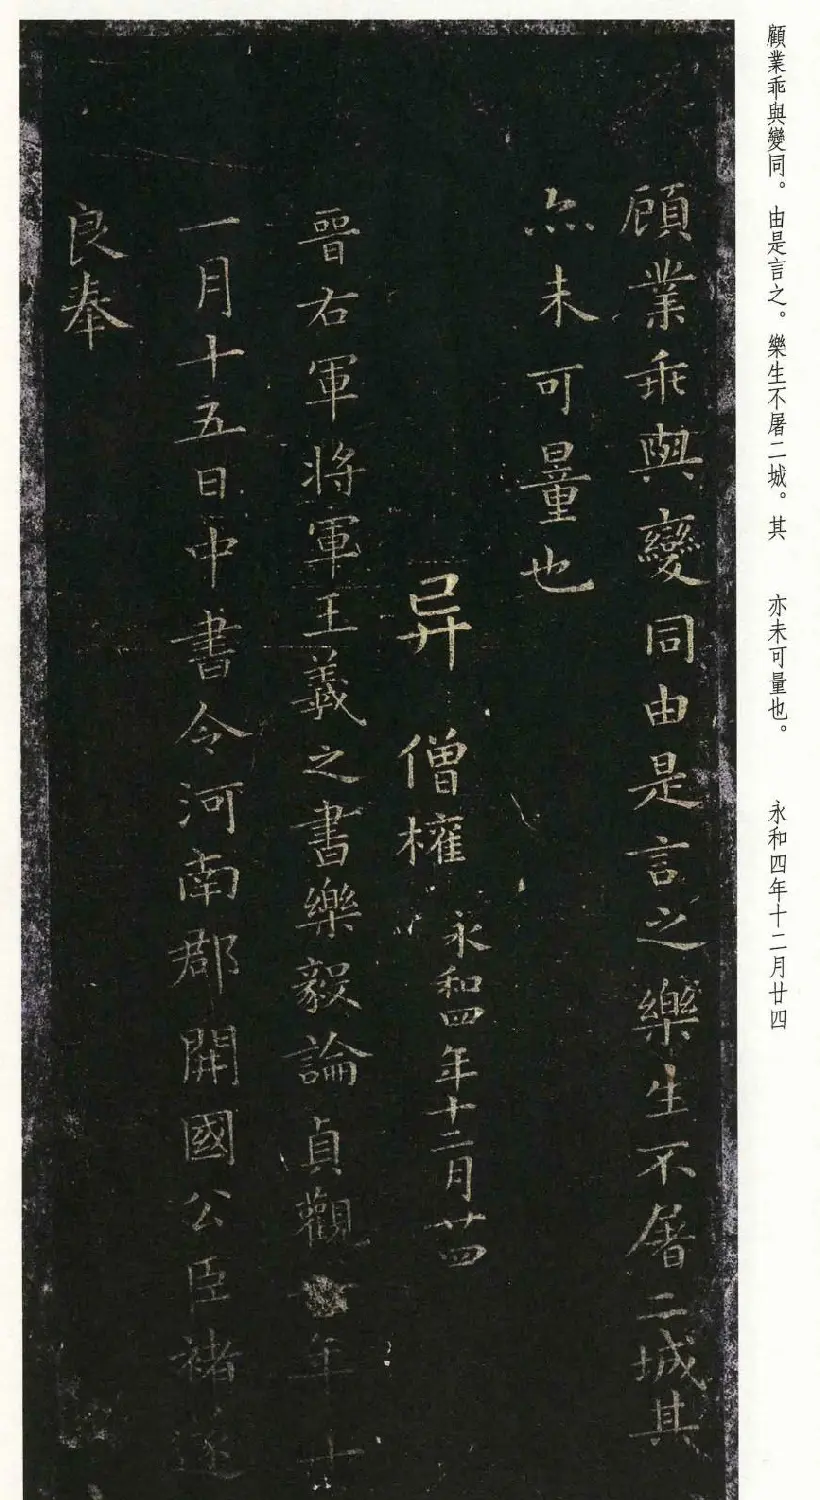 顧業乖與變同。由是言之。樂生不屠二城。其　亦未可量也。　永和四年十二月廿四
顧業乖與變同由是言之樂生不屠二城其
亦未可量也
异　僧權　永和四年十二月廿四
晉右軍將軍王羲之書樂毅論貞觀年十
一月十五日中書令河南郡開國公臣褚遂
良奉